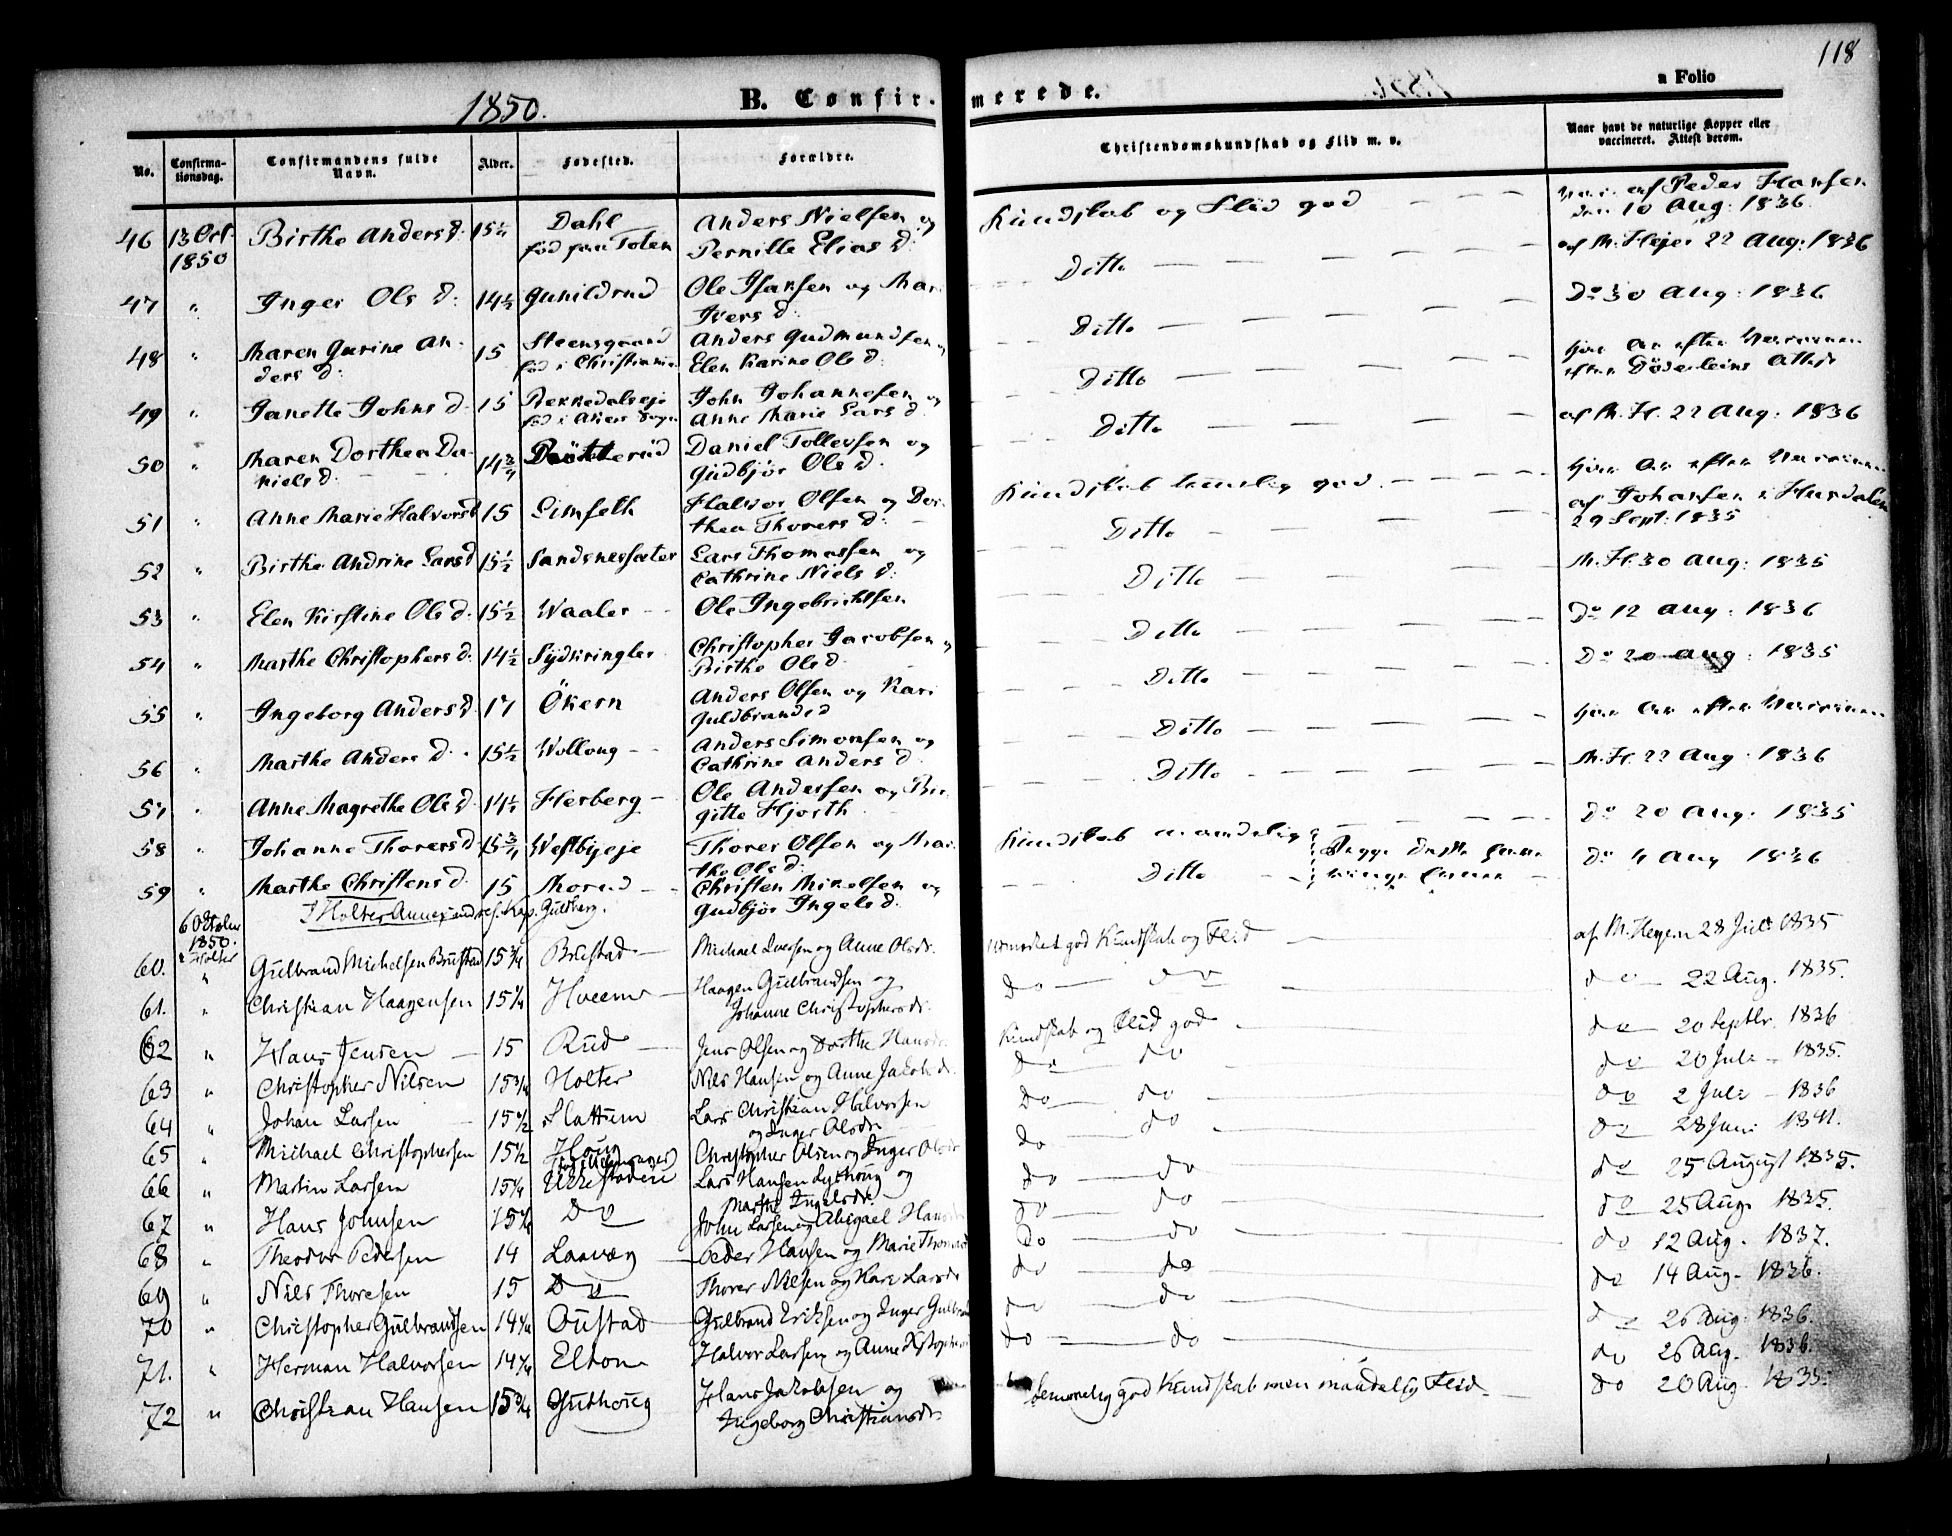 118
1850.
B. Confirmerede.
a Folio
No.
Confirmationsdag.
Confirmandens fulde Navn.
Alder.
Fødested.
Forældre.
Christendomskundskab og Flid m. v.
Naar havt de naturlige Kopper eller vaccineret. Attest derom.
46 13 Oct. 1850 Birthe Anders d. 15¼ Dahl født paa Toten Anders Nielsen og Pernille Elias d: Kundskab og Flid god af Peder Hansen den 10 Aug: 1836
47 " Inger Ols d: 14½ Gunildrud Ole Isaksen og Mari Ivers d: Ditto af M. Hejer 22 Aug: 1836
48 " Maren Gurine Anders d: 15 Steensgaard fød i Christiania Anders Gudmundsen og Elen Karine Ols d: Ditto Do 30 Aug: 1836
49 " Janette Johns d. 15 fød i Aker John Johannesen og Anne Marie Lars d. Ditto har Ar efter Vaccinen efter Attest
50 " Maren Dorthea Daniels d: 14¾ Daniel Tollevsen og Gudbjør Ols d. Ditto af M. H. 22 Aug: 1836
51 " Anne Marie Halvorsd 15 Limseth Halvor Olsen og Dorthea Thorers d: Kundskab temmelig god har Ar efter Vaccinen
52 " Birthe Andrine Larsd 15½ Sandnessæter Lars Thomassen og Cathrine Niels d: Ditto af Johansen i Hurdalen 29 Sept: 1835
53 " Elen Kirstine Ols d. 15½ Waaler Ole Ingebrichtsen Ditto M. H. 30 Aug: 1835
54 " Marthe Christophers d. 14½ Sydkringler Christopher Jacobsen og Birthe Ols d. Ditto Do 12 Aug: 1836
55 " Ingeborg Anders d 17 Økern Anders Olsen og Kari Guldbrands d Ditto Do 20 Aug: 1835
56 " Marthe Anders d. 15½ Wollong Anders Simonsen og Cathrine Anders d. Ditto har Ar efter Vaccinen
57 " Anne Magrethe Ols d. 14½ Herberg Ole Andersen og Birgitte Hjorth Ditto M. H. 22 Aug: 1836
58 " Johanne Thorersd 15¾ Westbyeje Thorer Olsen og Marthe Ols d: Kundskab maadelig Do 20 Aug 1835
59 " Marthe Christens d. 15 Morud Christen Mikelsen og Gudbjør Ingels d. Ditto Do 4 Aug 1836
I Holter Annex, Kap. Guldberg.
60. 6 October 1850. i Holter Gulbrand Michelsen Brustad 15¾ Brustad Michael Iversen og Anne Olsdr. Udmærket god Kundskab og Flid af M. Heyer 28 Juli 1835
61. " Christian Haagensen 15¼ Hveem Haagen Gulbrandsen og Johanne Christophersdr. do do do 22 Aug. 1835.
62 " Hans Jensen 15 Rud Jens Olsen og Dorthe Hansdr. Kundskab og Flid god do 20 Septbr. 1836
63 " Christopher Nilsen 15¾ Holter Nils Hansen og Anne Jakobsdr. do do do 20 Juli 1835.
64 " Johan Larsen 15½ Slattum Lars Christian Halvorsen og Inger Olsdr do do do 2 Juli 1836
65 " Michael Christophersen 15½ Houg Christopher Olsen og Inger Olsdr do do do 28 Juni 1841.
66 " Martin Larsen 15¼ Ukkestaden Lars Hansen Lysthoug og Marthe Ingelsdr. do do do 25 August 1835.
67 " Hans Johnsen 15¼ Do John Larsen og Abigael Hansdr do do do 25 Aug. 1835.
68 " Theodor Pedersen 14 Laaveg Peder Hansen og Marie Thomasdr do do do 12 Aug. 1837.
69 " Nils Thoresen 15 Do Thorer Nilsen og Kari Larsdr do do do 14 Aug. 1836.
70 " Christopher Gulbrandsen 14¼ Oustad Gulbrand Eriksen og Inger Gulbrdr do do do 26 Aug. 1836.
71. " Herman Halvorsen 14¼ Elton Halvor Larsen og Anne Kristophersdr do do do 26 Aug. 1836.
72 " Christian Hansen 15¾ Guthoug Hans Jakobsen og Ingeborg Christiansdr. Temmelig god Kundskab men maadelig Flid do 20 Aug. 1835.